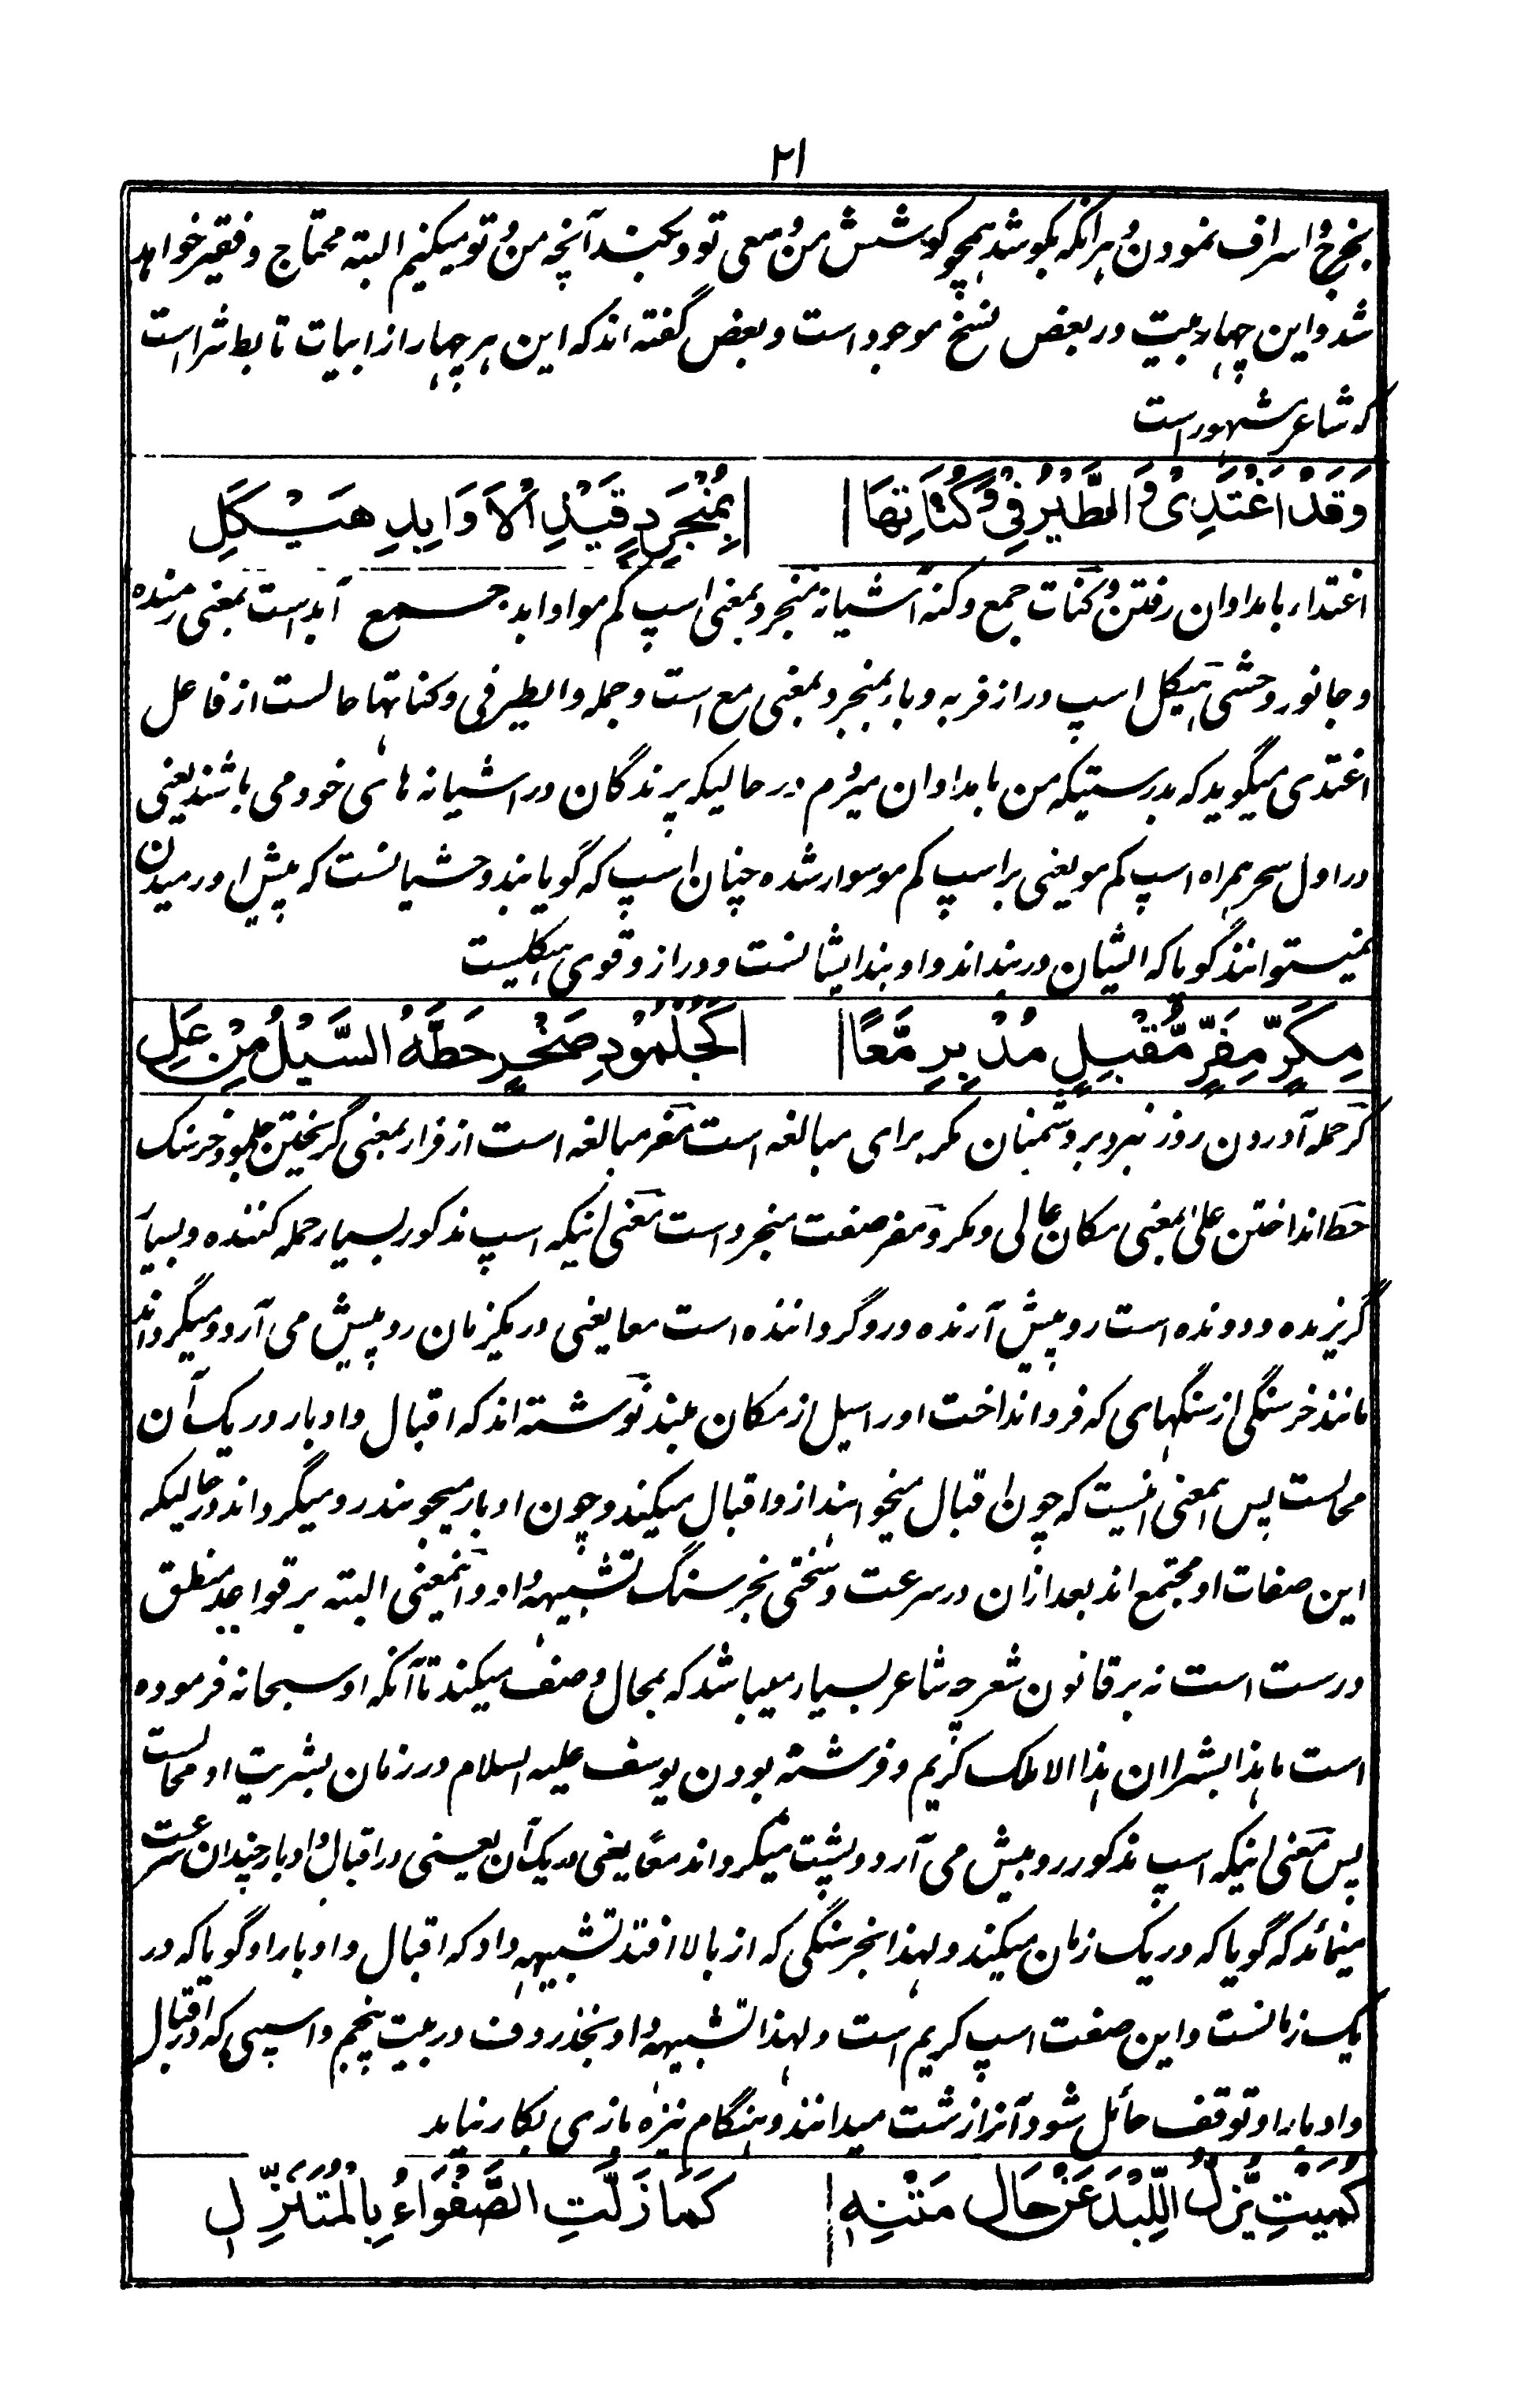 ۲۱
بخرج و اسراف نمودن و هرانکه بکوشد همچو کوشش من و سعی تو و بکند آنچه من و تو میکنیم البته محتاج و فقیر خواهد
شد و این چهار بیت در بعض نسخ موجود است و بعض گفته اند که این هر چهار از ابیات تابط شرا است
که شاعر مشهور است
وَقَدْ اَغْتَدِیْ وَالطَّیْرُ فِیْ وُکُنَاتِهَا | بِمُنْجَرِدٍ قَیْدِ الْاَوَابِدِ هَیْکَلِ
اغتداء بامدادان رفتن وکنات جمع وکنه آشیانه منجرد بمعنی اسپ کم مو اوابد جمع آبد است بمعنی رمنده
و جانور وحشی هیکل اسپ دراز فربه و باء بمنجرد بمعنی مع است و جمله والطیر فی وکناتها حالست از فاعل
اغتدی میگوید که بدرستیکه من بامدادان میروم در حالیکه پرندگان در اشیانه های خود می باشند یعنی
در اول سحر همراه اسپ کم مو یعنی بر اسپ کم مو سوار شده چنان اسپ که گویا بند وحشیانست که پیش او رمیدن
نمیستوانند گویا که ایشان در بند اند و او بند ایشانست و دراز و قوی هیکلیست
مِکَرٍّ مِفَرٍّ مُّقْبِلٍ مُدْبِرٍ مَّعًا | کَجُلْمُوْدِ صَخْرٍ حَطَّهُ السَّیْلُ مِنْ عَلِ
کر حمله آوردن روز نبرد بر دشمنان مکر برای مبالغه است مفر مبالغه است از فرار بمعنی گریختن جلمود خرسنگ
حط انداختن علی بمعنی مکان عالی و مکر و مفر صفت منجرد است معنی اینکه اسپ مذکور بسیار حمله کننده و بسیار
گریزنده و دونده است رو بپیش آرنده و رو گرداننده است معا یعنی در یکزمان رو بپیش می آرد و میگرداند
مانند خرسنگی از سنگهای که فرو انداخت او را سیل از مکان بلند نوشته اند که اقبال و ادبار در یک آن
محالست پس اینمعنی اینست که چون اقبال میخواهند ازو اقبال میکند و چون ادبار میجویند رو میگرداند در حالیکه
این صفات او مجتمع اند بعد ازان در سرعت و سختی بخرسنگ تشبیه داد و اینمعنی البته بر قواعد منطق
درست است نه بر قانون شعر چه شاعر بسیار میباشد که بمحال وصف میکند تا آنکه او سبحانه فرموده
است ما هذا بشرا ان هذا الا ملک کریم و فرشته بودن یوسف علیه السلام در زمان بشریت او محالست
پس معنی اینکه اسپ مذکور رو بپیش می آرد و پشت میگرداند معًا یعنی در یک آن یعنی در اقبال و ادبار چندان سرعت
مینماید که گویا که در یک زمان میکند و لهذا بخرسنگی که از بالا افتد تشبیه داد که اقبال و ادبار او گویا که در
یک زمانست و این صفت اسپ کریم است و لهذا تشبیه داد بخذروف در بیت پنجم و اسپی که در اقبال
و ادبار او توقف حائل شود آنرا زشت میدانند و هنگام نیزه بازی بکار نیاید
کُمَیْتٍ یَّزِلُّ اللِّبْدُ عَنْ حَالِ مَتْنِهِ | کَمَا زَلَّتِ الصَّفْوَاءُ بِالْمُتَنَزِّلِ